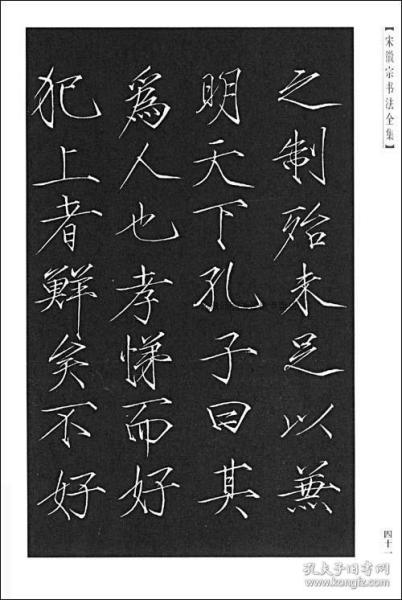 【宋徽宗书法全集】
之制殆未足以兼
明天下孔子曰其
為人也孝悌而好
犯上者鮮矣不好
四十一
孔夫子旧书网
www.kongfz.com